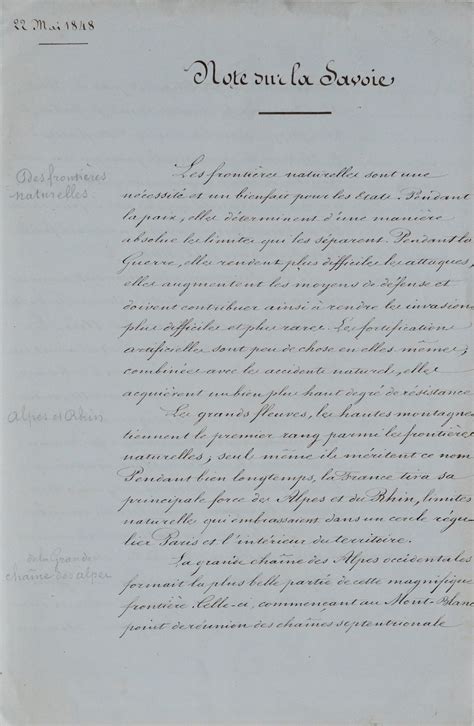 22 Mai 1848
Note sur la Savoie
Des frontières
naturelles.
Les frontières naturelles sont une
nécessité et un bienfait pour les Etats. Pendant
la paix, elles déterminent d'une manière
absolue les limites qui les séparent. Pendant la
Guerre, elles rendent plus difficiles les attaques,
elles augmentent les moyens de défense et
doivent contribuer ainsi à rendre les invasions
plus difficiles et plus rares. Les fortifications
artificielles sont peu de chose en elles mêmes;
combinées avec les accidents naturels, elles
acquièrent un bien plus haut degré de résistance
Alpes et Rhin
Les grands fleuves, les hautes montagnes
tiennent le premier rang parmi les frontières
naturelles; seuls même ils méritent ce nom
Pendant bien longtemps, la France tira sa
principale force des Alpes et du Rhin, limites
naturelles qui embrassaient dans un cercle régu
lier Paris et l'intérieur du territoire.
de la Grande
chaîne des alpes
La grande chaîne des Alpes occidentales
formait la plus belle partie de cette magnifique
frontière. Celle-ci, commençant au Mont-Blanc
point de réunion des chaînes septentrionales